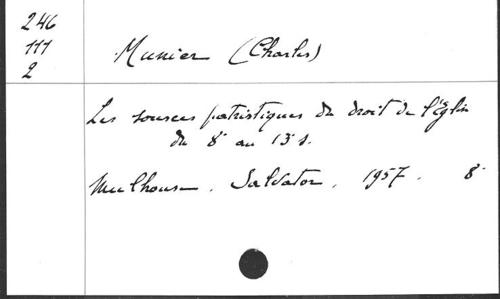 246
111
2
Munier (Charles)
Les sources patristiques du droit de l'Église
du 8e au 13e s.
Mulhouse. Salvator, 1957. 8°